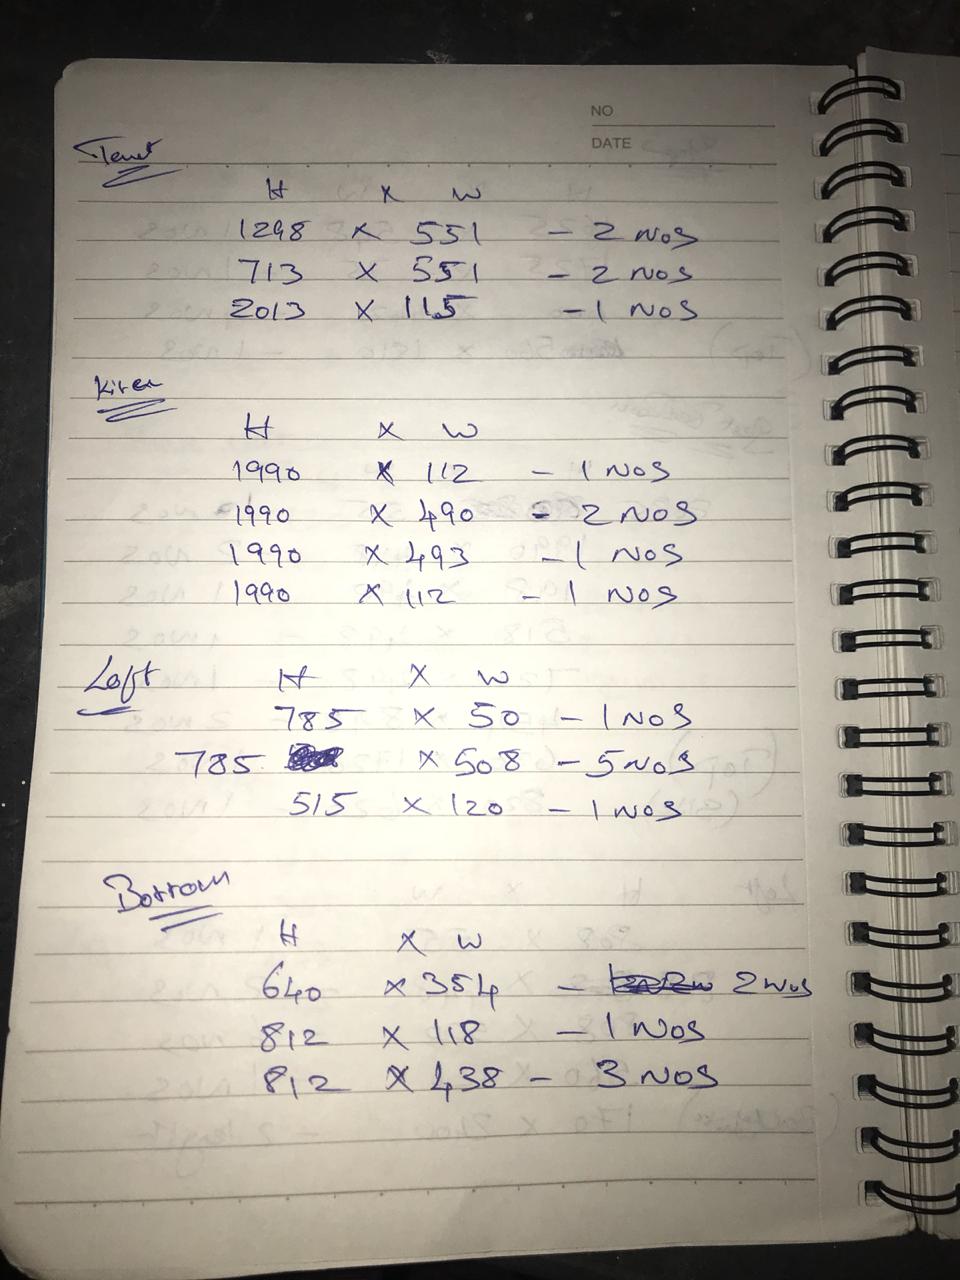 NO
DATE
H X W
1298 X 551 - 2 NOS
713 X 551 - 2 NOS
2013 X 115 - 1 NOS
H X W
1990 X 112 - 1 NOS
1990 X 490 - 2 NOS
1990 X 493 - 1 NOS
1990 X 112 - 1 NOS
Loft H X W
785 X 50 - 1 NOS
785 X 508 - 5 NOS
515 X 120 - 1 NOS
Bottom
H X W
640 X 354 - 2 NOS
812 X 118 - 1 NOS
812 X 438 - 3 NOS